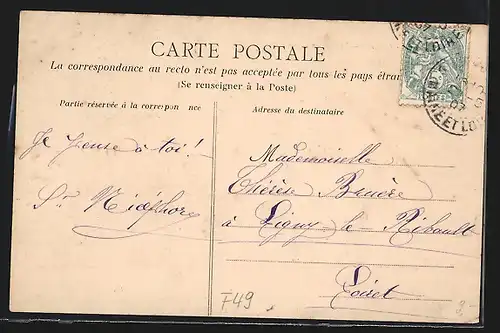 CARTE POSTALE
La correspondance au recto n'est pas acceptée par tous les pays étran
(Se renseigner à la Poste)
Partie réservée à la correspon nce
Adresse du destinataire
Je pense à toi!
Sr Nicéphore
Mademoiselle
Thérèse Bruère
à Ligny le Ribault
Loiret
F49
ET LOIR
ET LOI